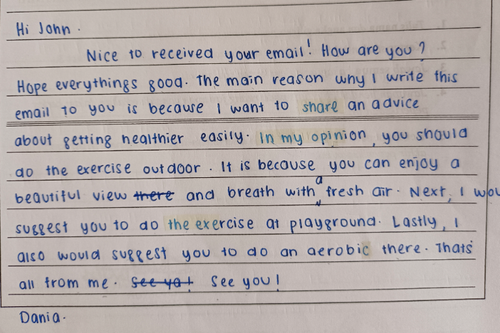 Hi John.
Nice to received your email! How are you?
Hope everythings good. The main reason why I write this
email to you is because I want to share an advice
about getting healthier easily. In my opinion, you should
do the exercise outdoor. It is because you can enjoy a
beautiful view there and breath with a fresh air. Next, I wou
suggest you to do the exercise at playground. Lastly, I
also would suggest you to do an aerobic there. Thats
all from me. See ya! See you!
Dania.